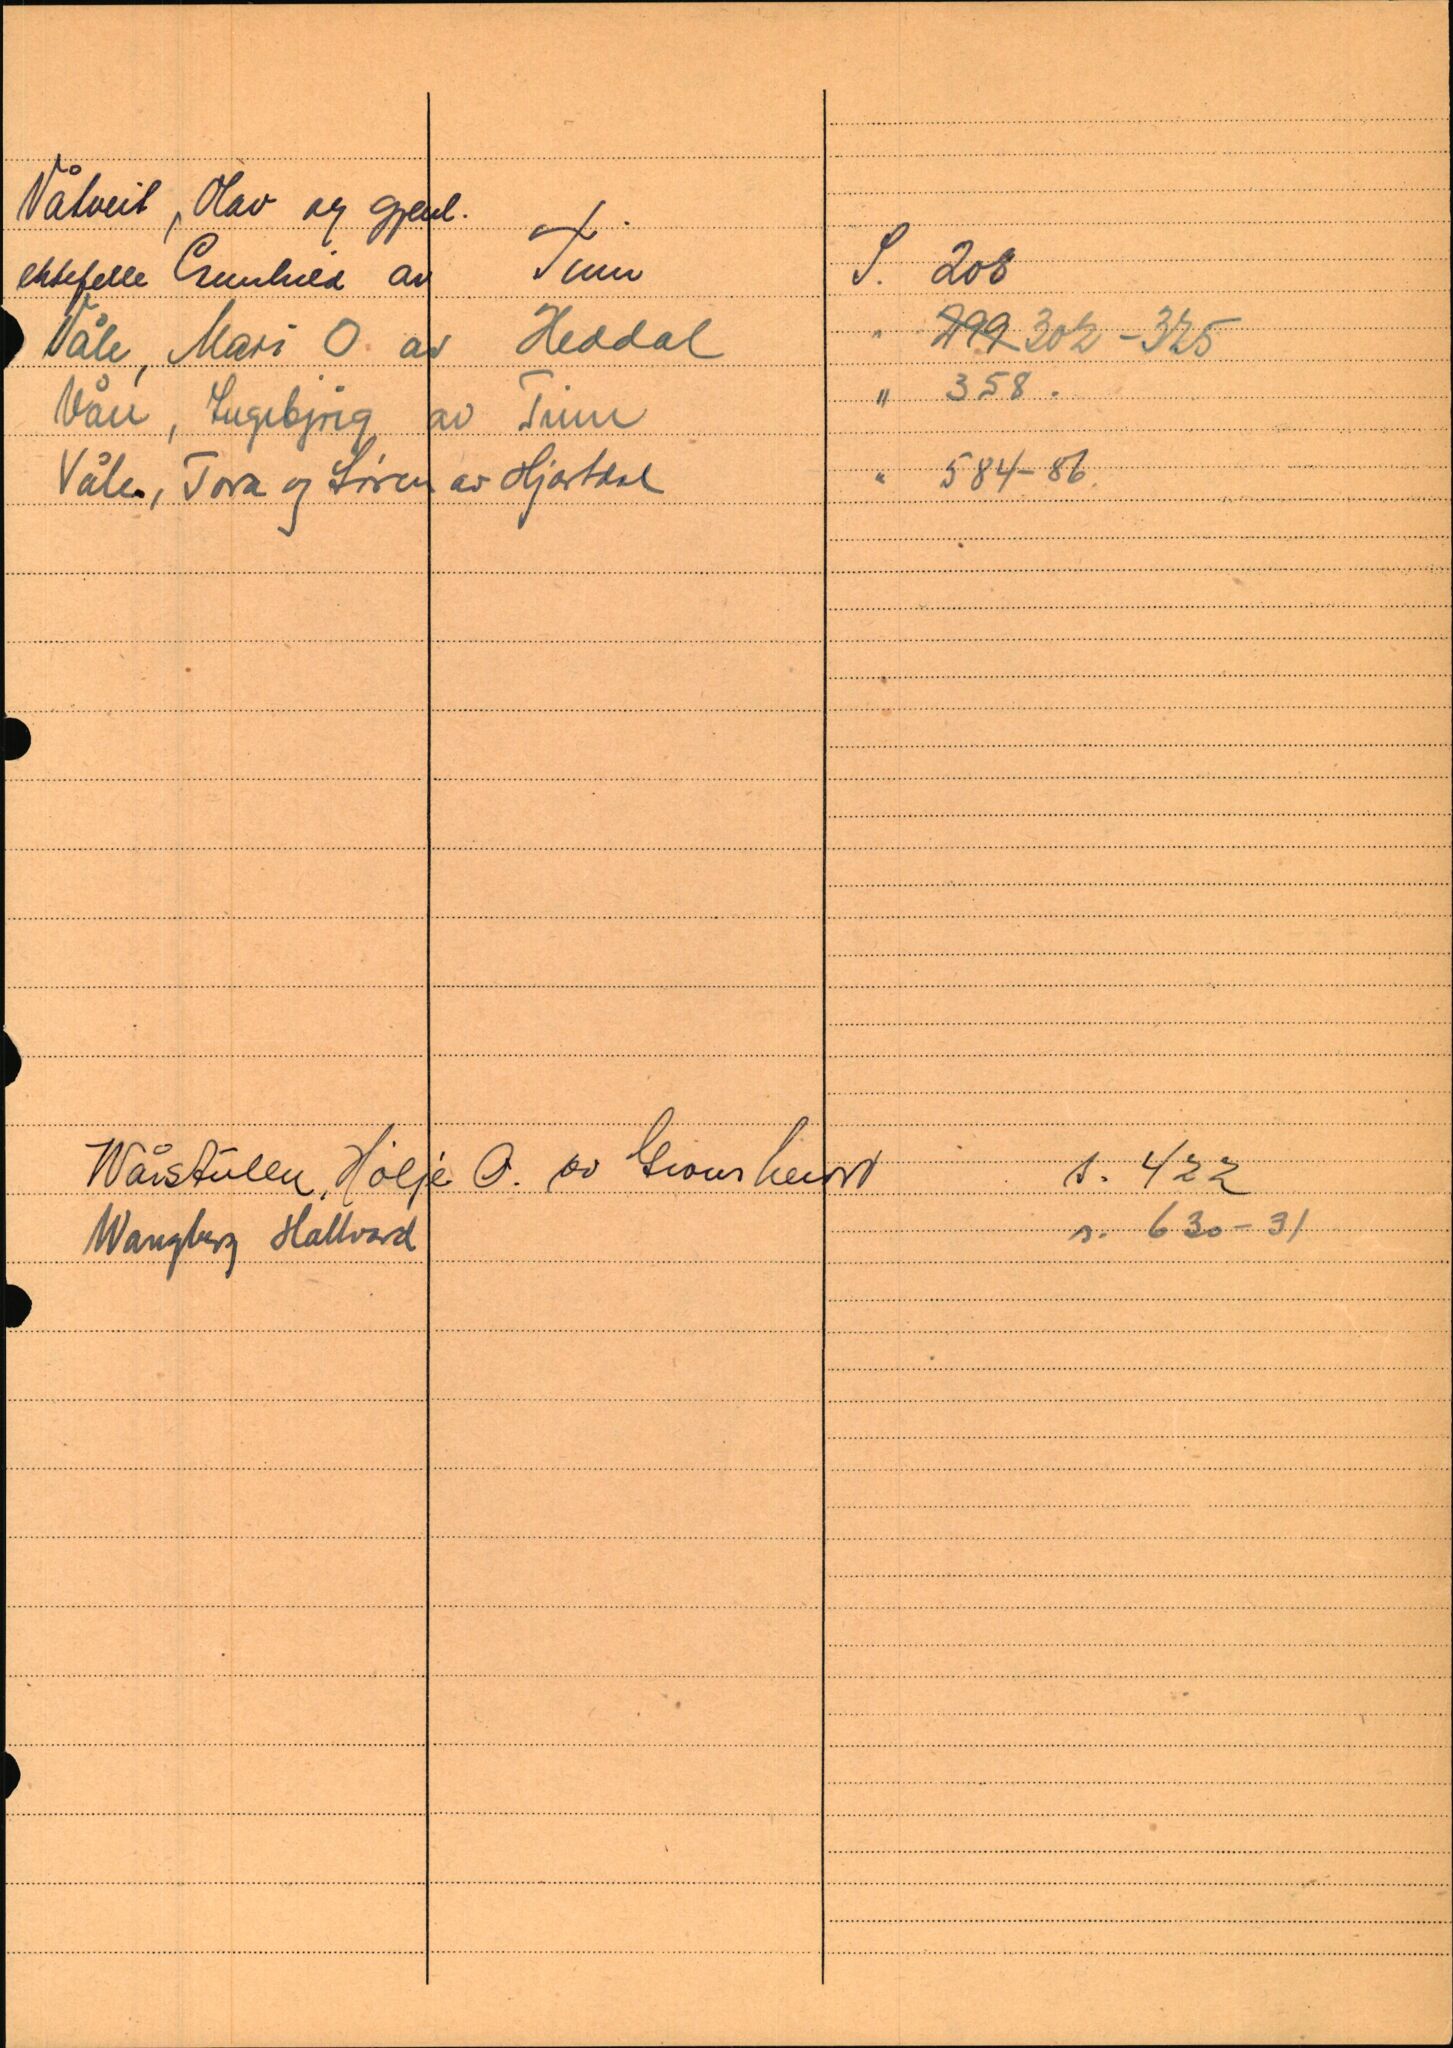 Våtveit, Olav og gjenl.
ektefelle Gunhild av Tinn S. 208
Våle, Mari O. av Heddal " 299 302-325
Våer, Ingebjørg av Tinn " 358.
Våle, Tora og Søren av Hjartdal " 584-86.
Wårstulen, Hølje O. av Gransherad s. 422
Wangberg Hallvard s. 630-31